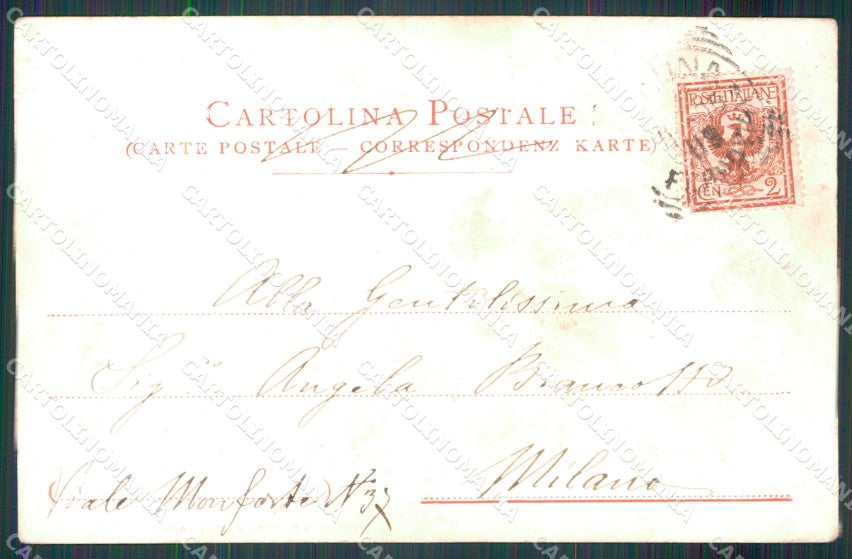 CARTOLINA POSTALE
(CARTE POSTALE — CORRESPONDENZ KARTE)
POSTE ITALIANE
CEN 2
Alla Gentilissima
Sigª Angela
Milano
Viale Monforte Nº 37
CARTOLINOMANIA